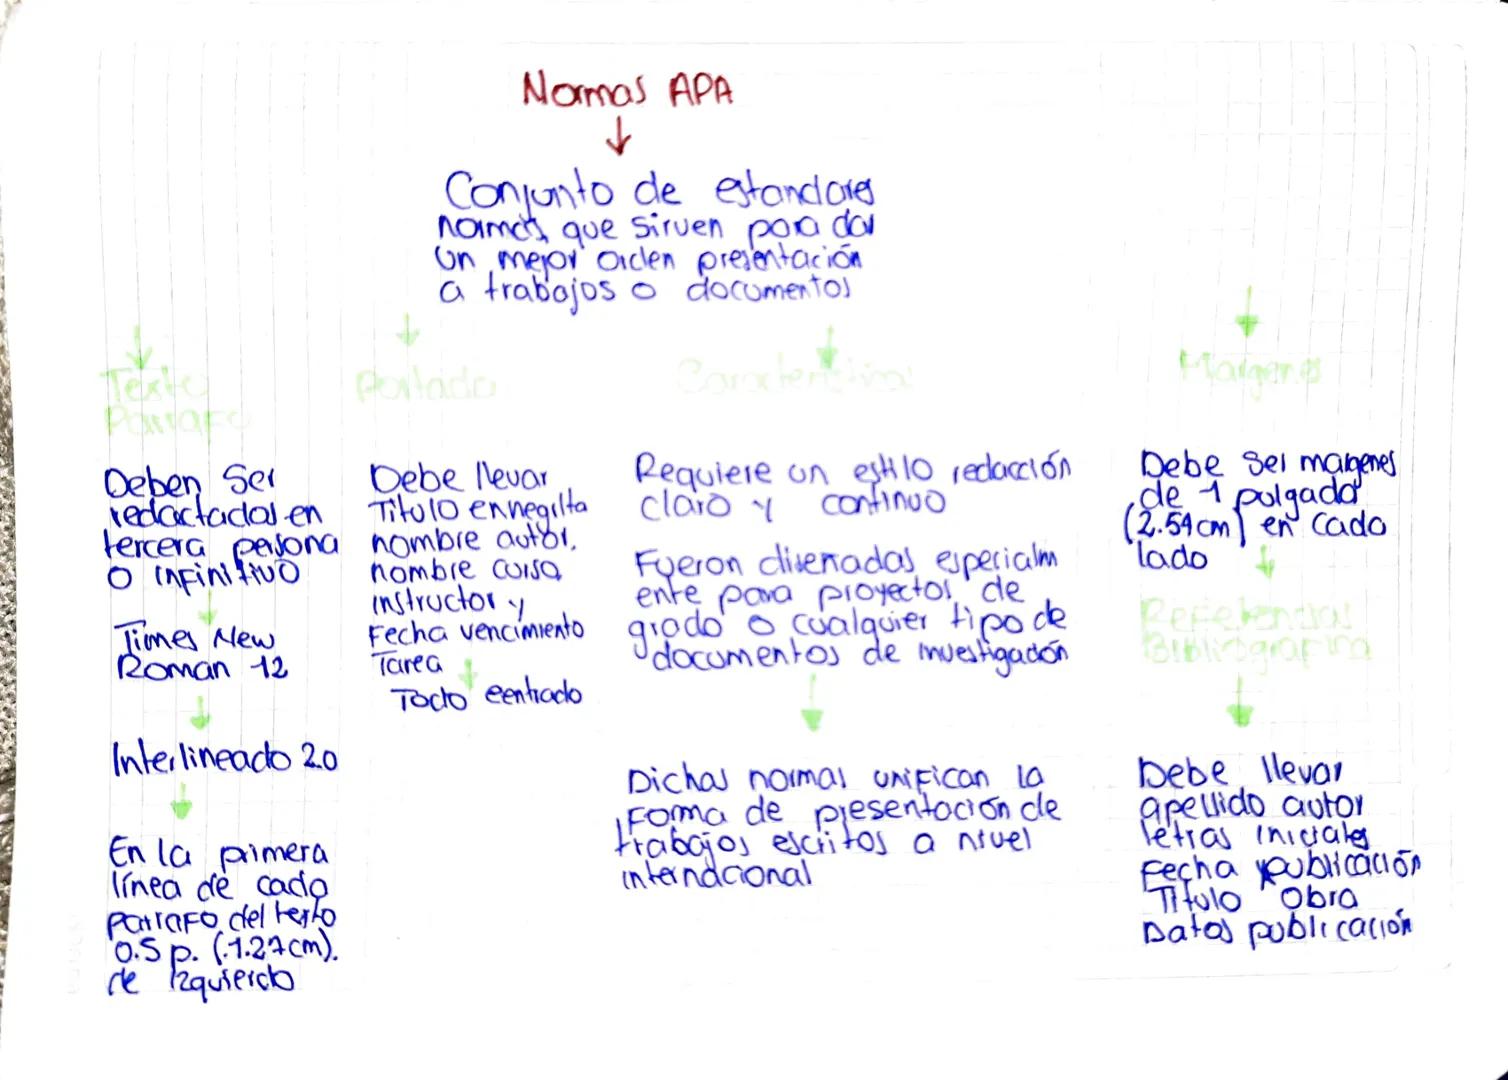 Normas APA
Conjunto de estandares
normas, que sirven para dar
un mejor orden presentación
a trabajos o documentos
Texto
Parrafo
Deben Ser
redactadas en
tercera persona
o infinitivo
Times New
Roman 12
Interlineado 2.0
En la primera
línea de cada
parrafo del texto
0.5 p. (.1.27cm).
de Izquierdo
Portada
Debe llevar
Titulo en negrita
nombre autor,
nombre curso,
instructor y
Fecha vencimiento
Tarea
Todo centrado
Caracteristicas
Requiere un estilo redacción
claro y continuo
Fueron diseñadas especialm
ente para proyectos de
grado o cualquier tipo de
documentos de investigación
Dichas normas unifican la
forma de presentación de
trabajos escritos a nivel
internacional
Margenes
Debe Ser margenes
de 1 pulgada
(2.54cm) en cada
lado
Referencias
Bibliografica
Debe llevar
apellido autor
letras iniciales
Fecha publicación
Titulo Obra
Datos publicación